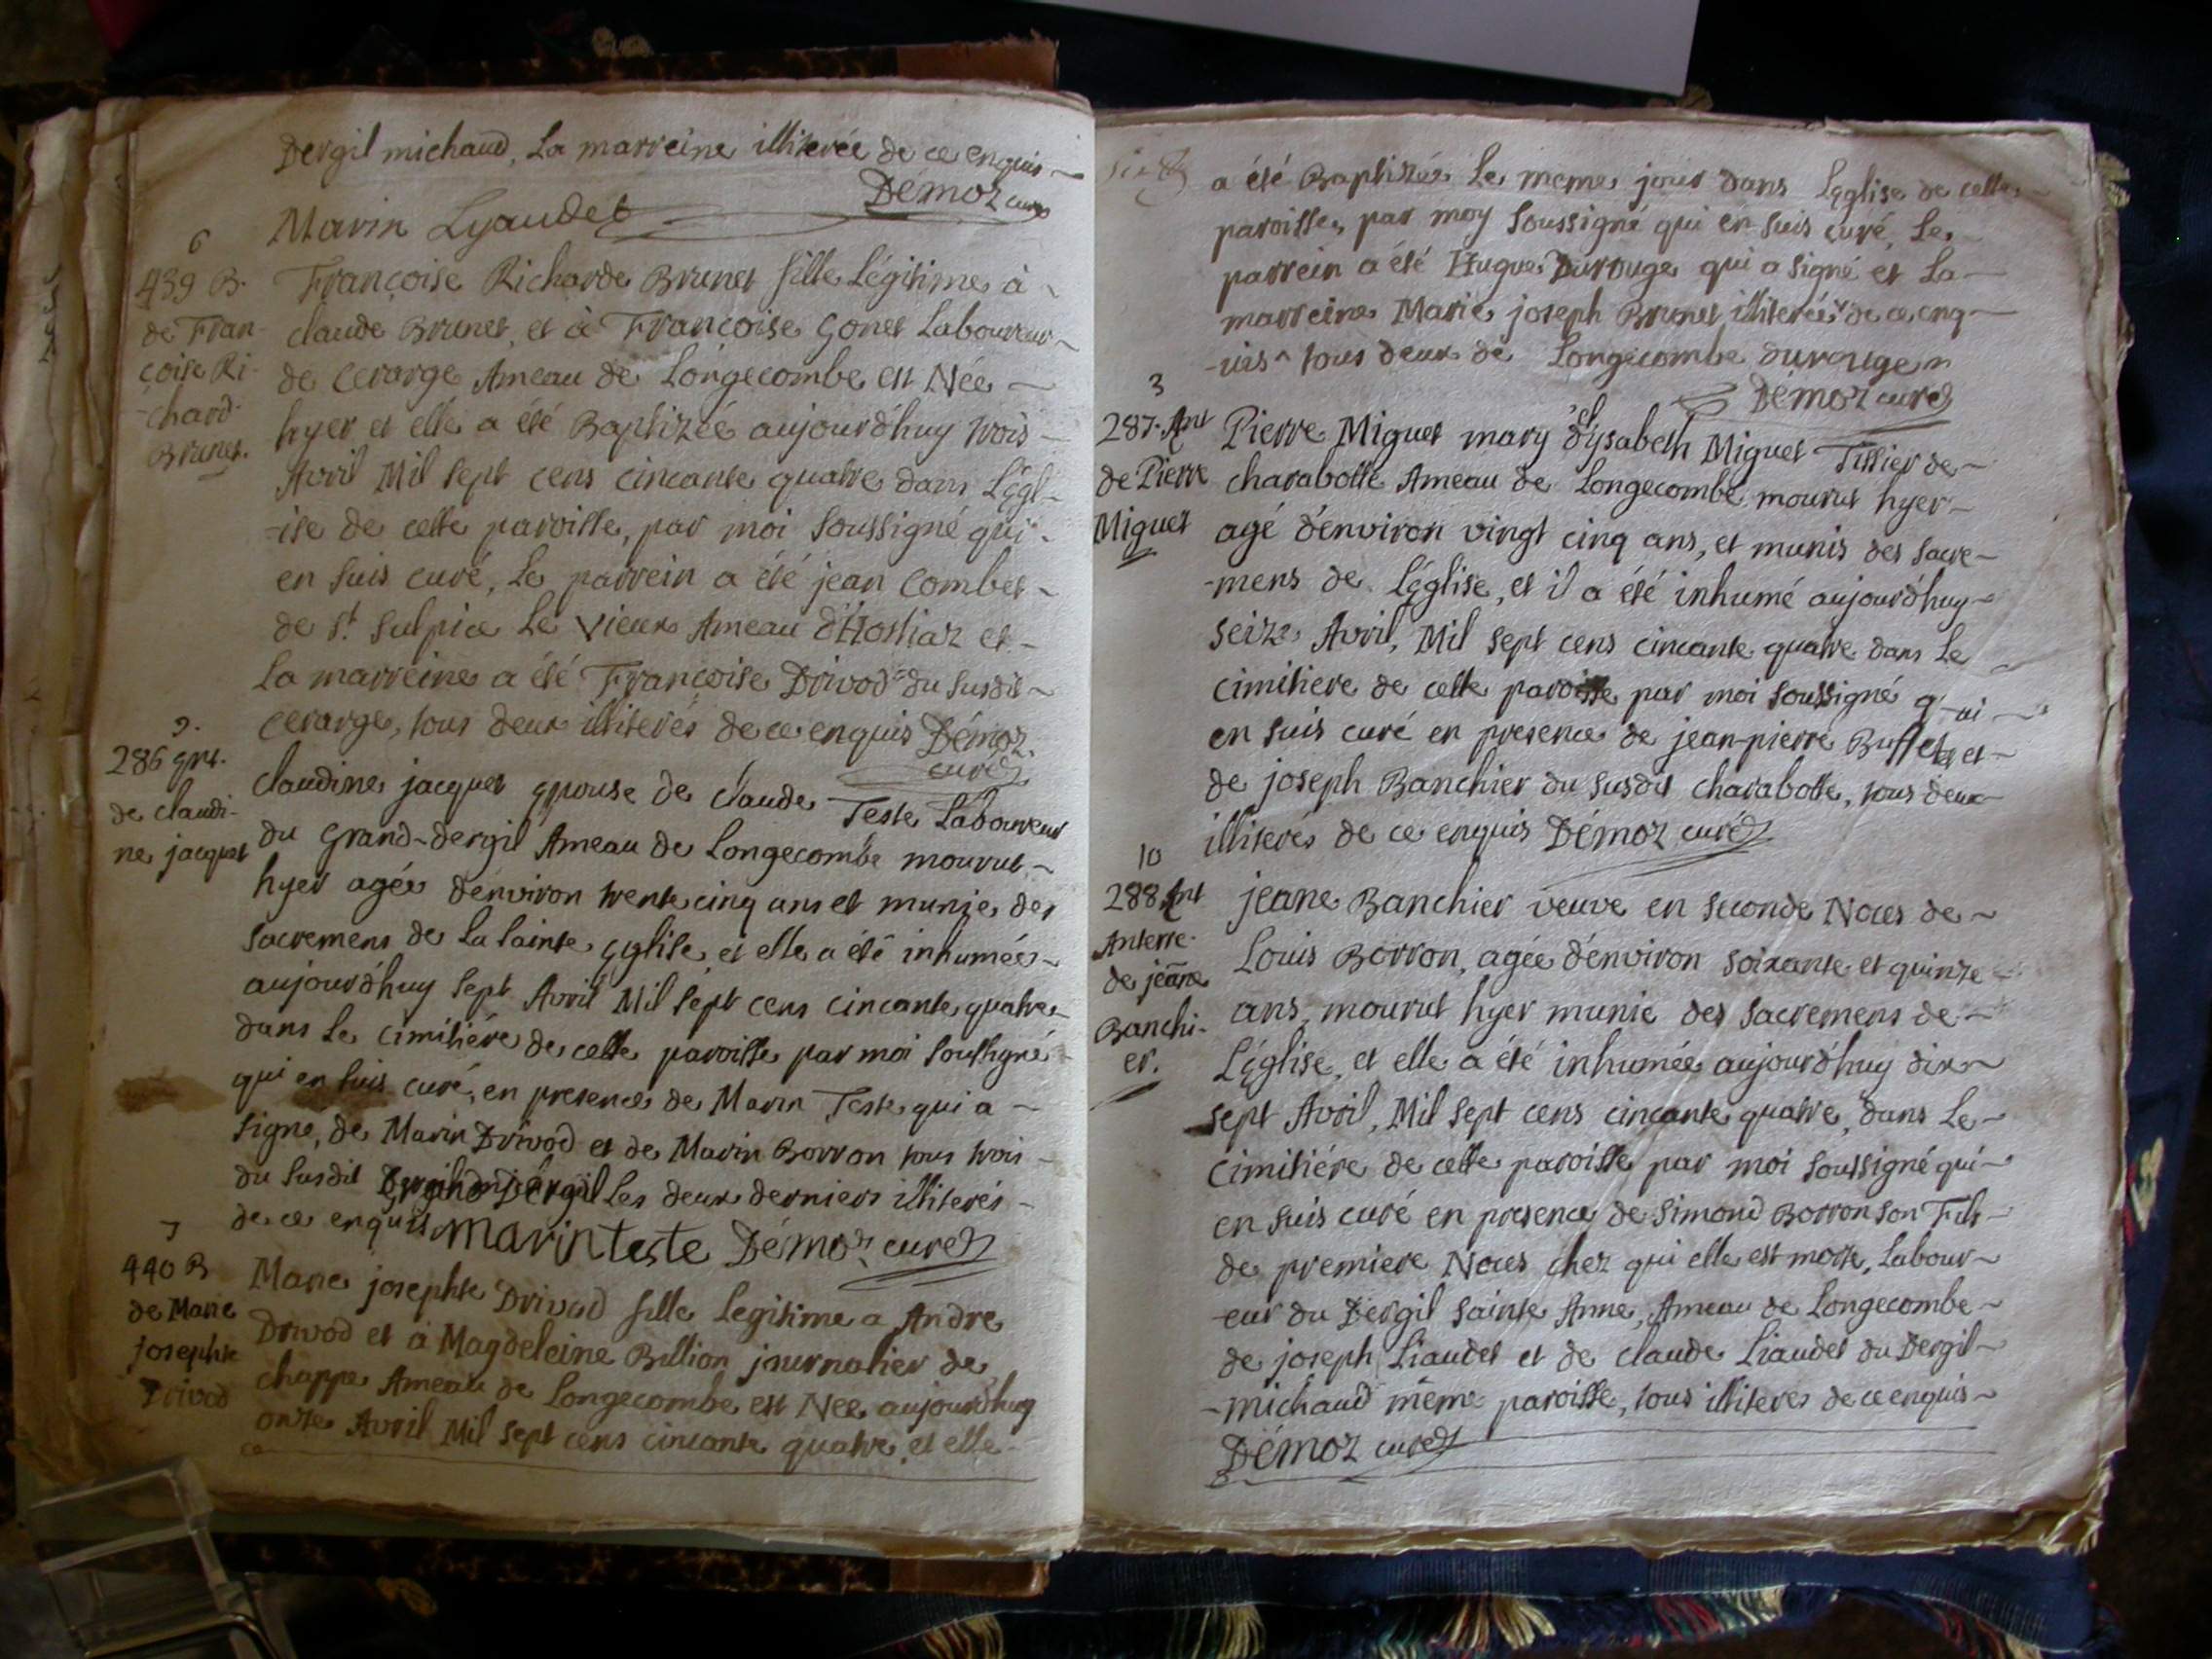 Dergil michaud, La marreine illiterée de ce enquis
Démoz curé
Marin Lyaudet
6
439 B.
de Fran-
çoise Ri-
-chard-
Brunet.
Françoise Richarde Brunet fille Légitime à
claude Brunet, et à Françoise Gonet Laboureur
de cerarge Ameau de Longecombe est Née
hyer et elle a été Baptizée aujourd'huy trois
Avril Mil sept cens cincante quatre dans L'égl-
-ise de cette paroisse, par moi soussigné qui
en suis curé, Le parrein a été jean Combet
de St. sulpice Le vieux Ameau d'Hostiaz et
La marreine a été Françoise Drivod du susdit
cerarge, tous deux illiterés de ce enquis Démoz
curé
9.
286 Ent.
de claudi-
ne jacquet
claudine jacquet epouse de claude Teste Laboureur
du Grand-dergil Ameau de Longecombe mourut
hyer agée d'environ trente cinq ans et munie des
sacremens de La sainte Eglise, et elle a été inhumée
aujourd'huy sept Avril Mil sept cens cincante quatre
dans Le cimitiére de cette paroisse par moi soussigné
qui en suis curé, en presence de Marin Teste qui a
signé, de Marin Drivod et de Marin Borron tous trois
du susdit Grand Dergil Les deux derniers illiterés
de ce enquis marin teste Démoz curé
7
440 B
de Marie
josephte
Drivod
Marie josephte Drivod fille legitime a Andre
Drivod et à Magdeleine Bullion journalier de
chappe Ameau de Longecombe est Née aujourdhuy
onze Avril Mil sept cens cincante quatre, et elle
a été Baptizée Le meme jour dans L'eglise de cette
paroisse, par moy soussigné qui en suis curé, Le
parrein a été Hugue Durouge qui a signé et La
marreine Marie joseph Brunet illiterée de ce enq-
-uis ^ tous deux de Longecombe durouge
Démoz curé
3
287. Ent
de Pierre
Miguet
Pierre Miguet mary d'ysabeth Miguet Tissier de
charabotte Ameau de Longecombe mourut hyer
agé d'environ vingt cinq ans, et munis des sacre-
-mens de L'église, et il a été inhumé aujourd'huy
seize Avril, Mil sept cens cincante quatre dans Le
cimitiere de cette paroisse par moi soussigné q-ui
en suis curé en presence de jean-pierre Buffet et
de joseph Banchier du susdit charabotte, tous deux
illiterés de ce enquis Démoz curé
10
288 Ent
Anterre-
de jeane
Banchi-
er.
jeane Banchier veuve en seconde Noces de
Louis Borron, agée d'environ soixante et quinze
ans, mourut hyer munie des sacremens de
L'église, et elle a été inhumée aujourd'huy dix
sept Avril, Mil sept cens cincante quatre, dans Le
cimitiére de cette paroisse par moi soussigné qui
en suis curé en presence de Simond Borron son Fils
de premiere Noces chez qui elle est morte, Labour-
-eur du Dergil sainte Anne, Ameau de Longecombe
de joseph Liaudet et de claude Liaudet du Dergil
-michaud même paroisse, tous illiteres de ce enquis
Démoz curé